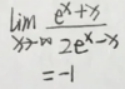 lim x→-∞ (e^x+x)/(2e^x-x)
=-1